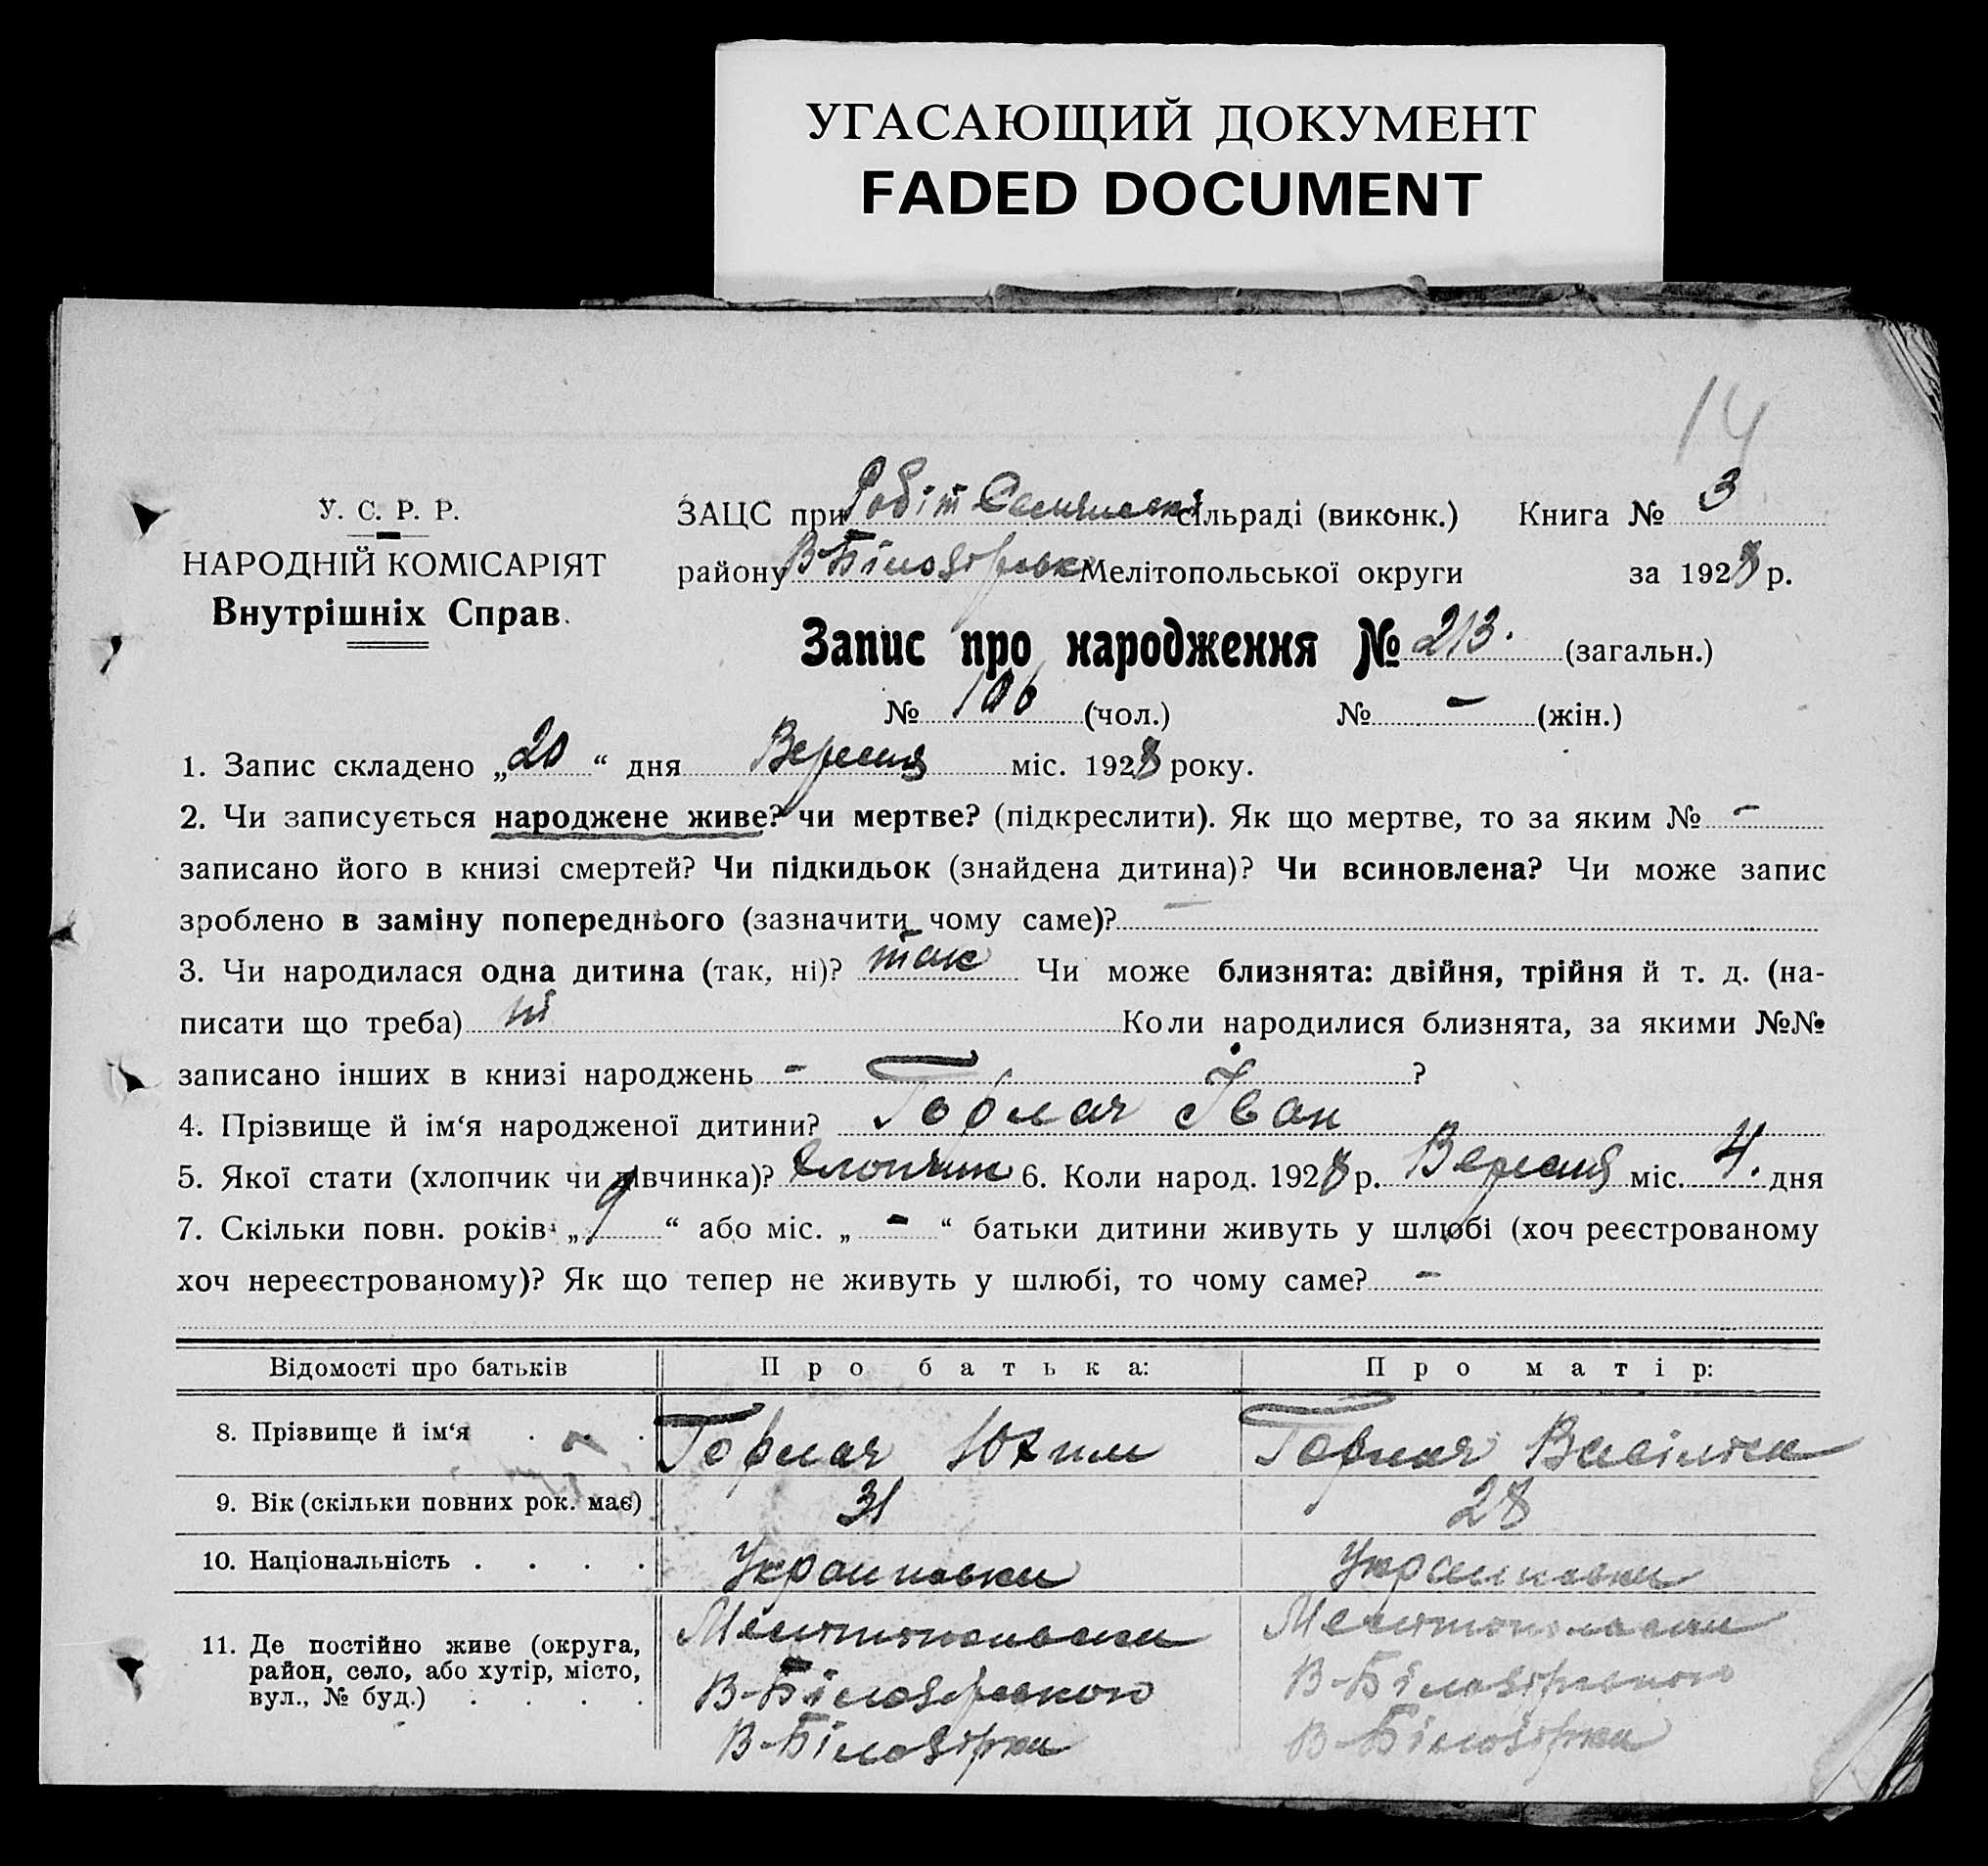 УГАСАЮЩИЙ ДОКУМЕНТ
FADED DOCUMENT
14
У. С. Р. Р.
НАРОДНІЙ КОМІСАРІЯТ
Внутрішніх Справ.
ЗАЦС при Робіт Селянські сільраді (виконк.) Книга № 3
району В-Білозірськ Мелітопольської округи за 1928 р.
Запис про народження № 213. (загальн.)
№ 106 (чол.) № - (жін.)
1. Запис складено „20“ дня Вересня міс. 1928 року.
2. Чи записується народжене живе? чи мертве? (підкреслити). Як що мертве, то за яким № -
записано його в книзі смертей? Чи підкидьок (знайдена дитина)? Чи всиновлена? Чи може запис
зроблено в заміну попереднього (зазначити чому саме)? -
3. Чи народилася одна дитина (так, ні)? так Чи може близнята: двійня, трійня й т. д. (на-
писати що треба) ні Коли народилися близнята, за якими №№
записано інших в книзі народжень - ?
4. Прізвище й ім‘я народженої дитини? Горлач Іван
5. Якої стати (хлопчик чи дівчинка)? хлопчик 6. Коли народ. 1928 р. Вересня міс. 4. дня
7. Скільки повн. років „9“ або міс. „-“ батьки дитини живуть у шлюбі (хоч реєстрованому
хоч нереєстрованому)? Як що тепер не живуть у шлюбі, то чому саме? -
Відомості про батьків Про батька: Про матір:
8. Прізвище й ім‘я . . . Горлач Юхим Горлач
9. Вік (скільки повних рок. має) 31 28
10. Національність . . . . Украинськи Украинськи
11. Де постійно живе (округа, Мелитопольськи Мелитопольськи
район, село, або хутір, місто, В-Білозірською В-Білозірською
вул., № буд.) . . . . В-Білозірки В-Білозірки